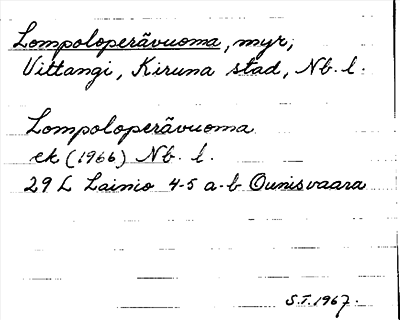 Lompoloperävuoma, myr,
Vittangi, Kiruna stad, Nb. l.
Lompoloperävuoma
ek (1966) Nb. l.
29 L Lainio 4-5 a-b Ounisvaara
S.T. 1967.